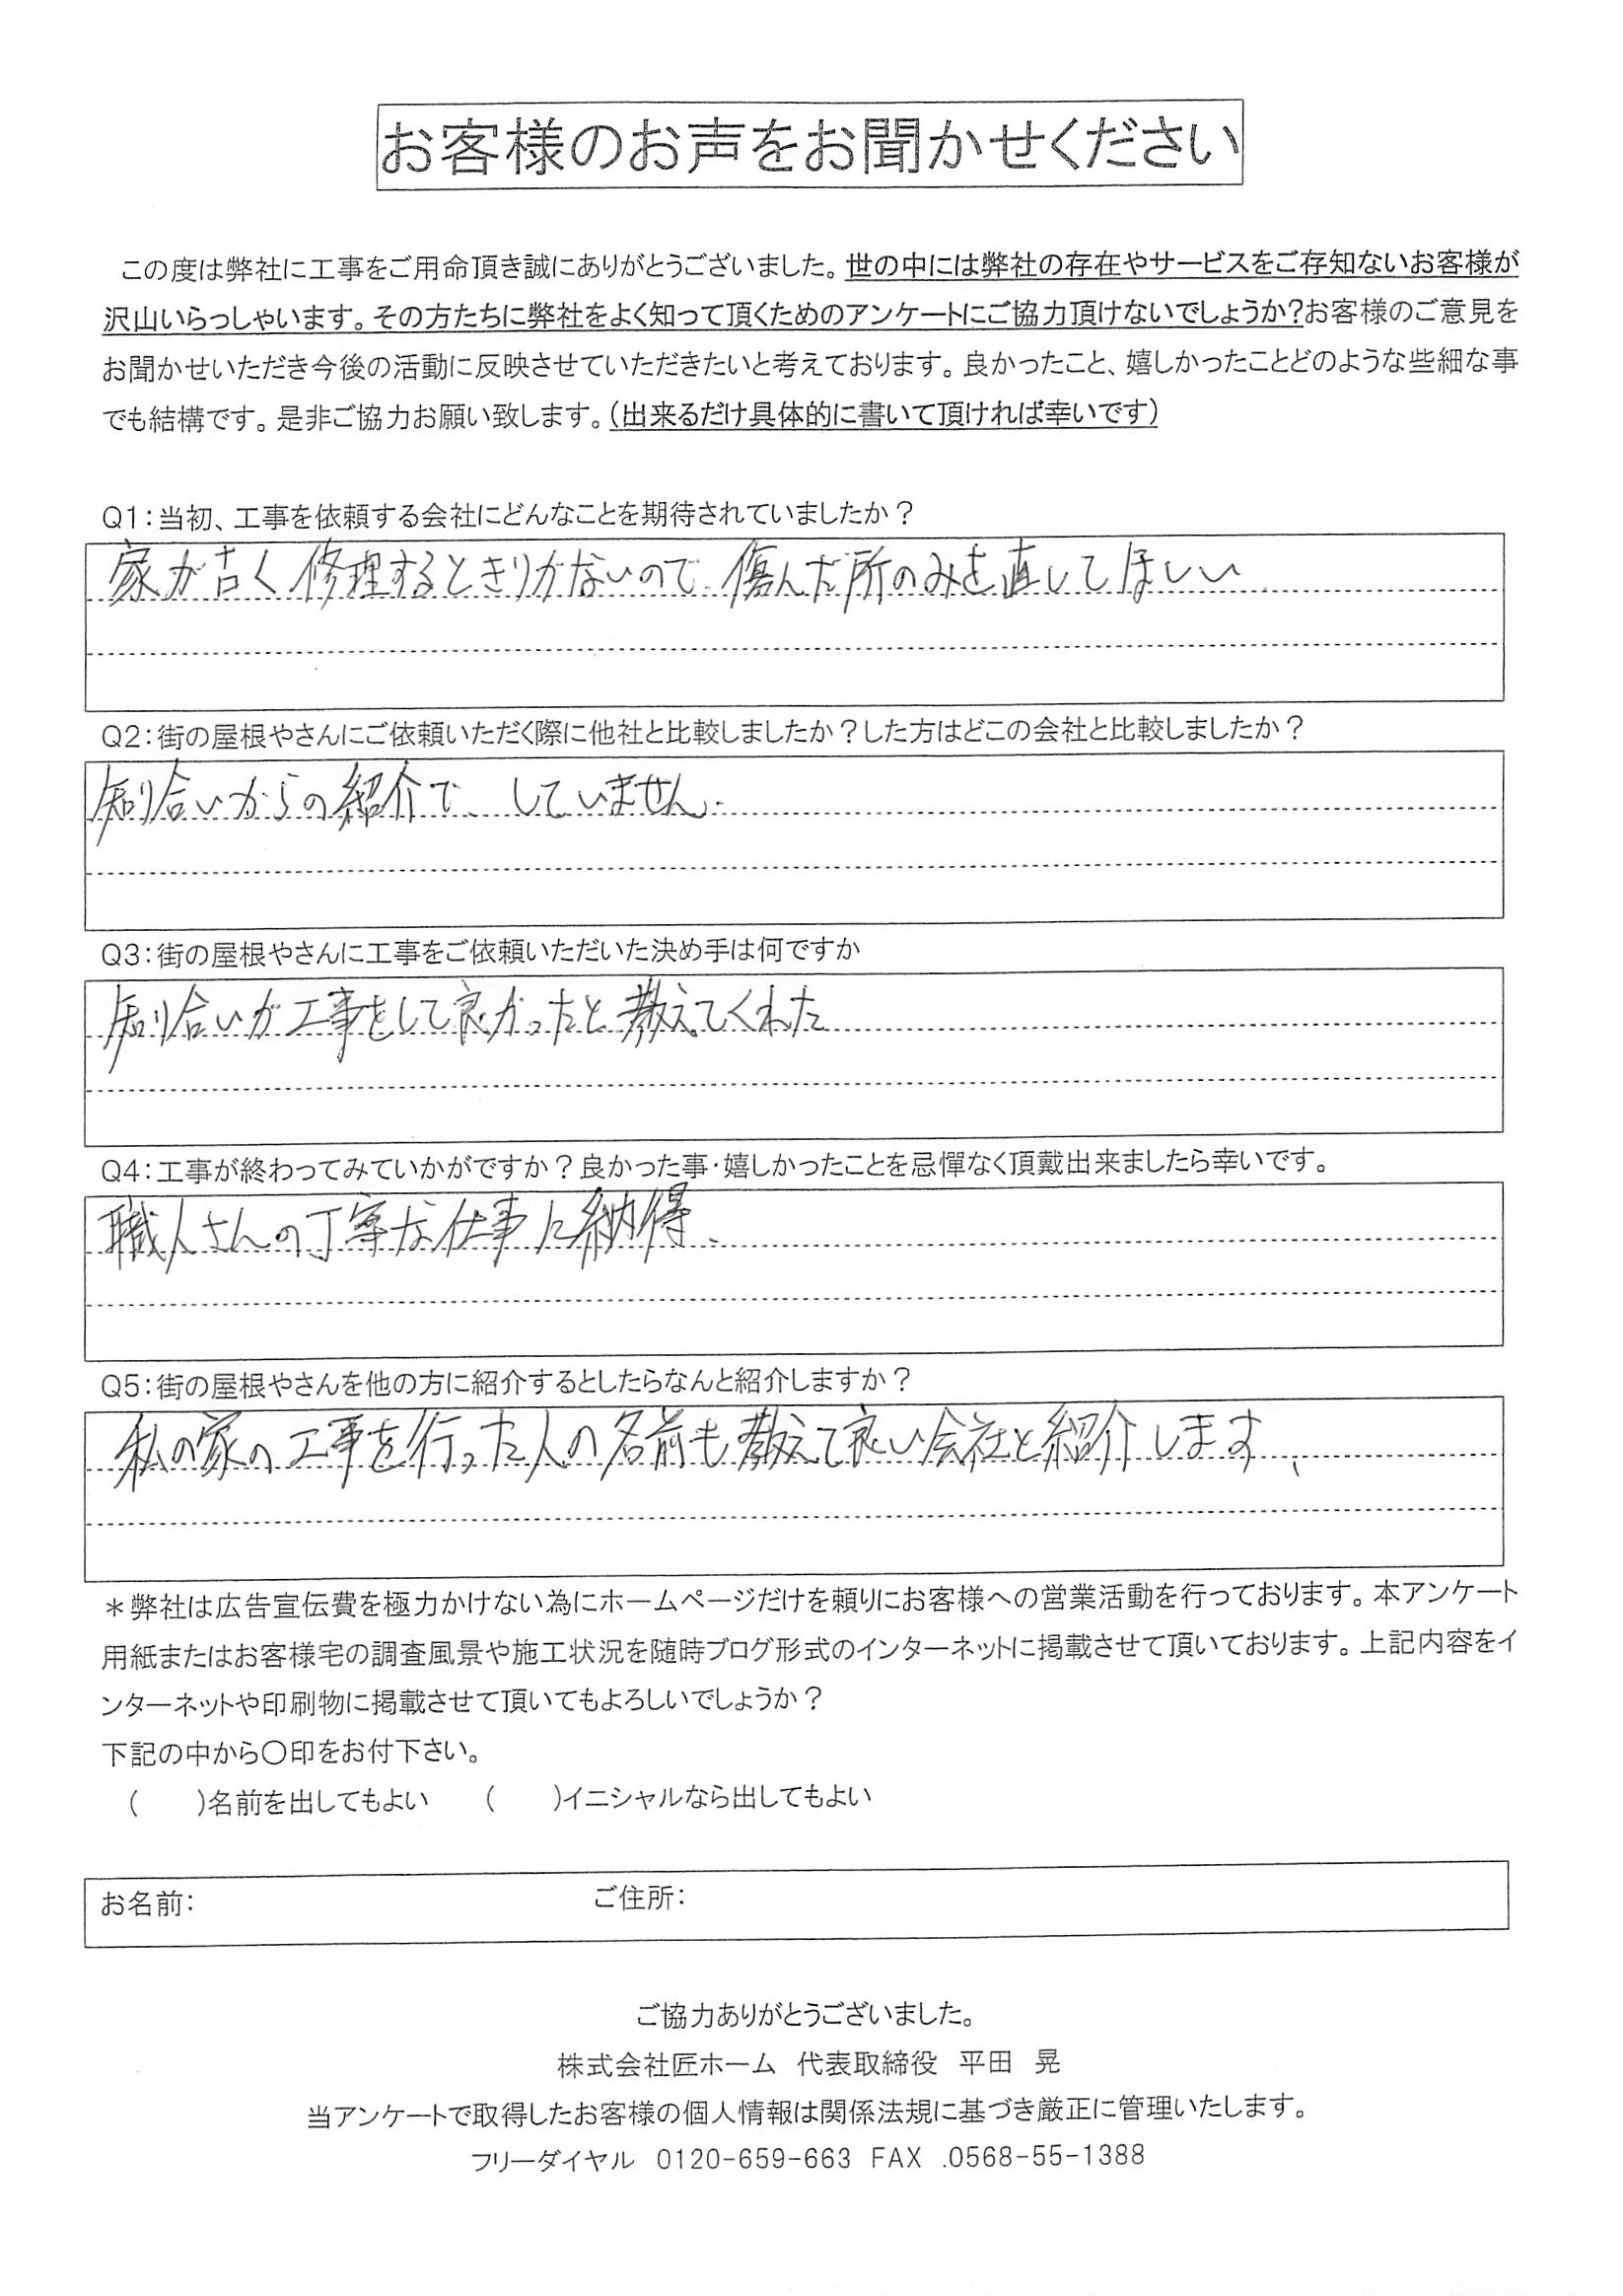 お客様のお声をお聞かせください
この度は弊社に工事をご用命頂き誠にありがとうございました。世の中には弊社の存在やサービスをご存知ないお客様が
沢山いらっしゃいます。その方たちに弊社をよく知って頂くためのアンケートにご協力頂けないでしょうか?お客様のご意見を
お聞かせいただき今後の活動に反映させていただきたいと考えております。良かったこと、嬉しかったことどのような些細な事
でも結構です。是非ご協力お願い致します。(出来るだけ具体的に書いて頂ければ幸いです)
Q1:当初、工事を依頼する会社にどんなことを期待されていましたか?
家が古く修理するときりがないので、傷んだ所のみを直してほしい
Q2:街の屋根やさんにご依頼いただく際に他社と比較しましたか?した方はどこの会社と比較しましたか?
知り合いからの紹介で、していません。
Q3:街の屋根やさんに工事をご依頼いただいた決め手は何ですか
知り合いが工事をして良かったと教えてくれた
Q4:工事が終わってみていかがですか?良かった事・嬉しかったことを忌憚なく頂戴出来ましたら幸いです。
職人さんの丁寧な仕事に納得、
Q5:街の屋根やさんを他の方に紹介するとしたらなんと紹介しますか?
私の家の工事を行った人の名前も教えて良い会社と紹介します、
*弊社は広告宣伝費を極力かけない為にホームページだけを頼りにお客様への営業活動を行っております。本アンケート
用紙またはお客様宅の調査風景や施工状況を随時ブログ形式のインターネットに掲載させて頂いております。上記内容をイ
ンターネットや印刷物に掲載させて頂いてもよろしいでしょうか?
下記の中から〇印をお付下さい。
(　　)名前を出してもよい　　(　　)イニシャルなら出してもよい
お名前:　　ご住所:
ご協力ありがとうございました。
株式会社匠ホーム　代表取締役　平田　晃
当アンケートで取得したお客様の個人情報は関係法規に基づき厳正に管理いたします。
フリーダイヤル　0120-659-663 FAX .0568-55-1388